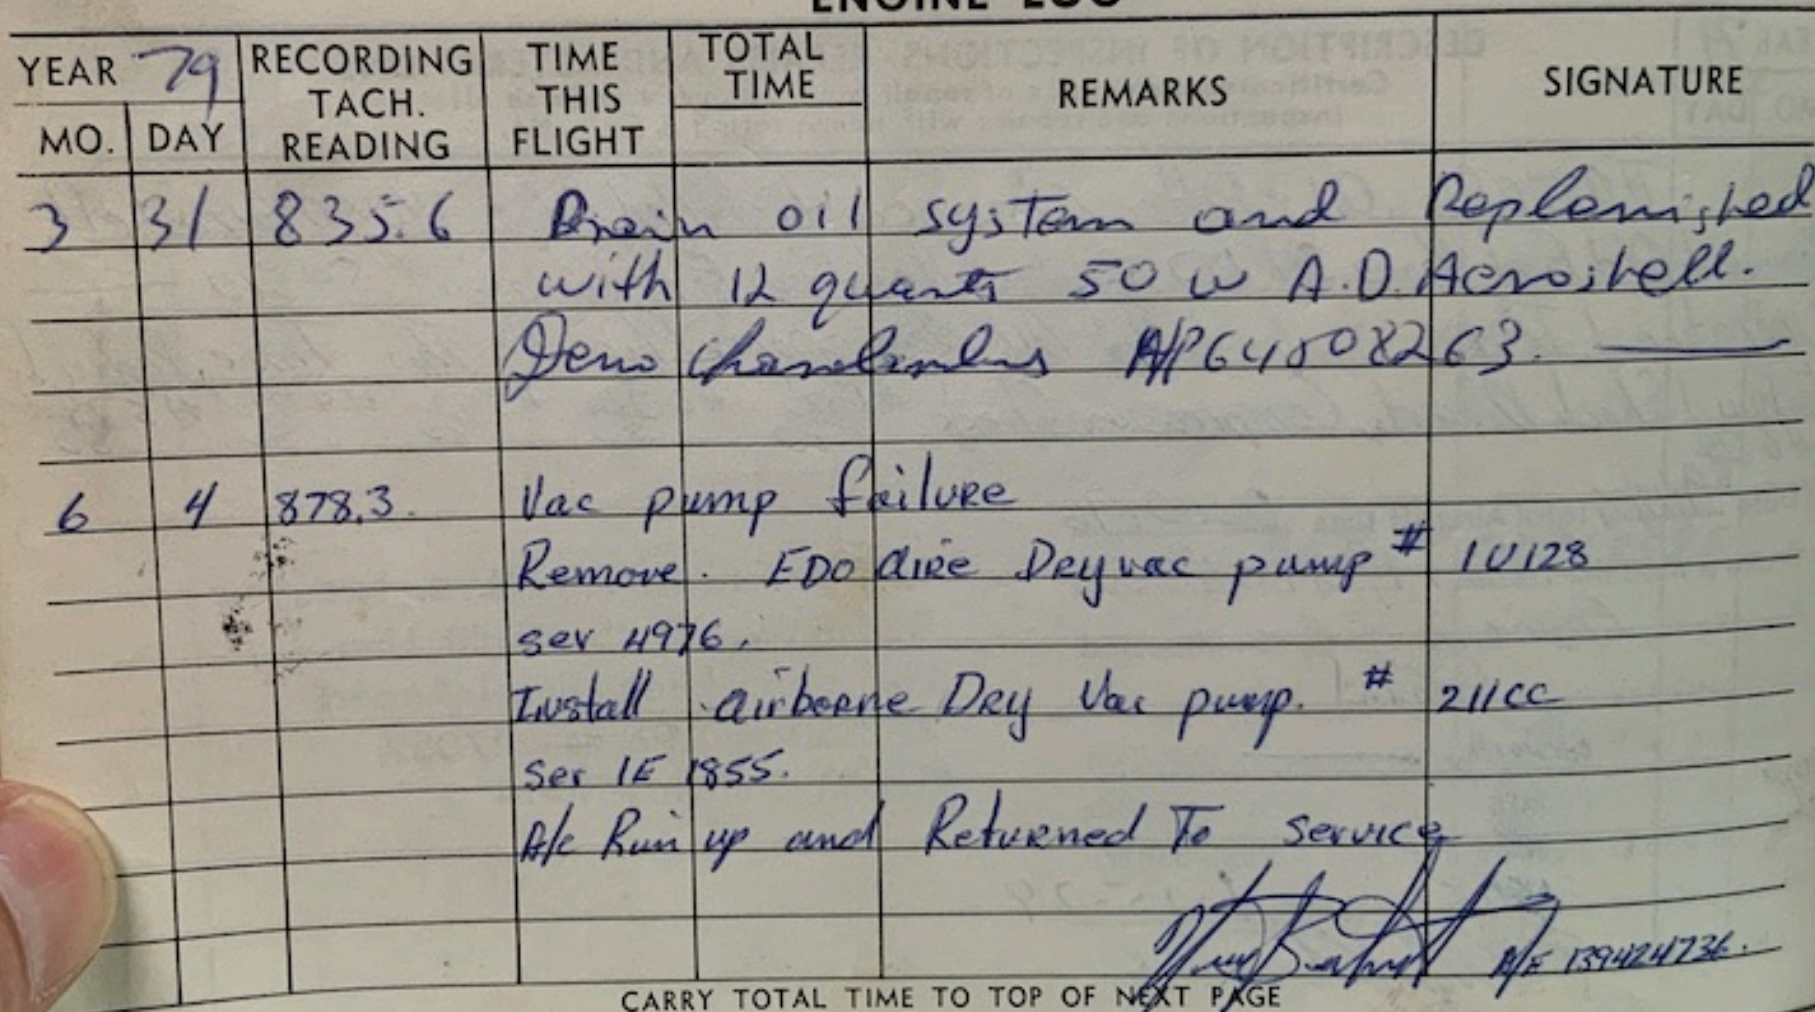 ENGINE LOG
YEAR 79 RECORDING TACH. READING TIME THIS FLIGHT TOTAL TIME REMARKS SIGNATURE
MO. DAY
3 31 835.6 Drain oil system and Replenished
with 12 quarts 50 W A.D. Aeroshell.
A/P
6 4 878.3. Vac pump failure
Remove. EDO aire Dry vac pump # 1U128
ser 4976.
Install airborne Dry Vac pump. # 211CC
Ser 1E 1855.
A/c Run up and Returned To service
CARRY TOTAL TIME TO TOP OF NEXT PAGE